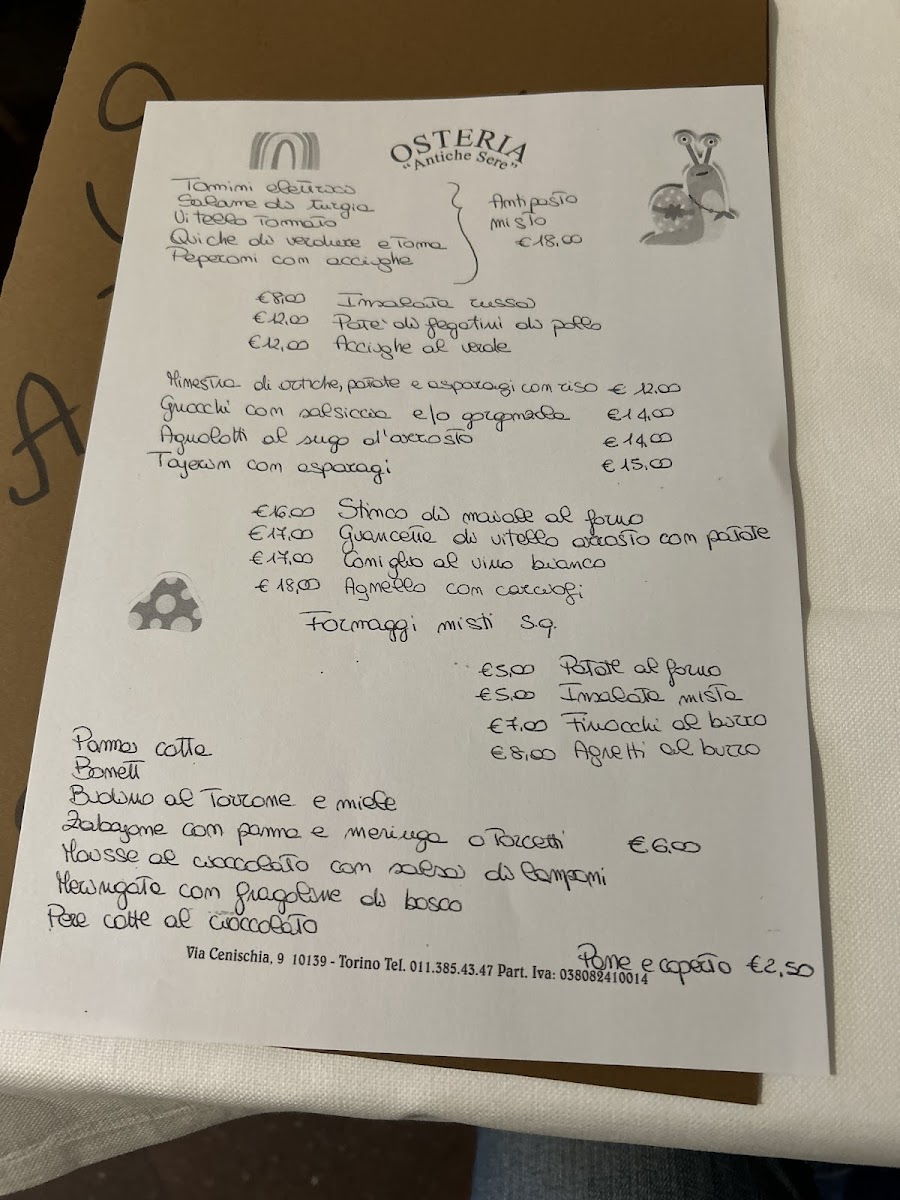 OSTERIA
"Antiche Sere"
Tomini elettrici
Salame di turgia
Vitello Tonnato
Quiche di verdure e Toma
Peperoni con acciughe
Antipasto
misto
€18,00
€8,00 Insalata russa
€12,00 Patè di fegatini di pollo
€12,00 Acciughe al verde
Minestra di ortiche, patate e asparagi con riso € 12,00
Gnocchi con salsiccia e/o gorgonzola €14,00
Agnolotti al sugo d'arrosto €14,00
Tajarin con asparagi €15,00
€16,00 Stinco di maiale al forno
€17,00 Guancette di vitello arrosto con patate
€17,00 Coniglio al vino bianco
€18,00 Agnello con carciofi
Formaggi misti s.q.
€5,00 Patate al forno
€5,00 Insalata mista
€7,00 Finocchi al burro
€8,00 Agretti al burro
Panna cotta
Bonett
Budino al Torrone e miele
Zabajone con panna e meringa o Torcetti €6,00
Mousse al cioccolato con salsa di lamponi
Meringata con fragoline di bosco
Pere cotte al cioccolato
Pane e coperto €2,50
Via Cenischia, 9 10139 - Torino Tel. 011.385.43.47 Part. Iva: 038082410014